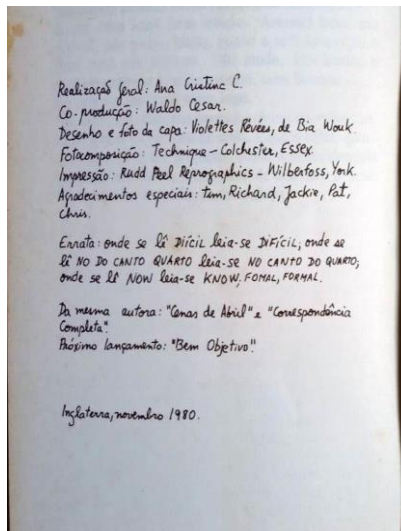 Realização geral: Ana Cristina C.
Co-produção: Waldo Cesar.
Desenho e foto da capa: Violettes Rêvées, de Bia Wouk.
Fotocomposição: Technique – Colchester, Essex.
Impressão: Rudd Peel Reprographics – Wilberfoss, York.
Agradecimentos especiais: Tim, Richard, Jackie, Pat,
Chris.
Errata: onde se lê DIÍCIL leia-se DIFÍCIL; onde se
lê NO DO CANTO QUARTO leia-se NO CANTO DO QUARTO;
onde se lê NOW leia-se KNOW, FOMAL, FORMAL.
Da mesma autora: "Cenas de Abril" e "Correspondência
Completa".
Próximo lançamento: "Bem Objetivo".
Inglaterra, novembro 1980.